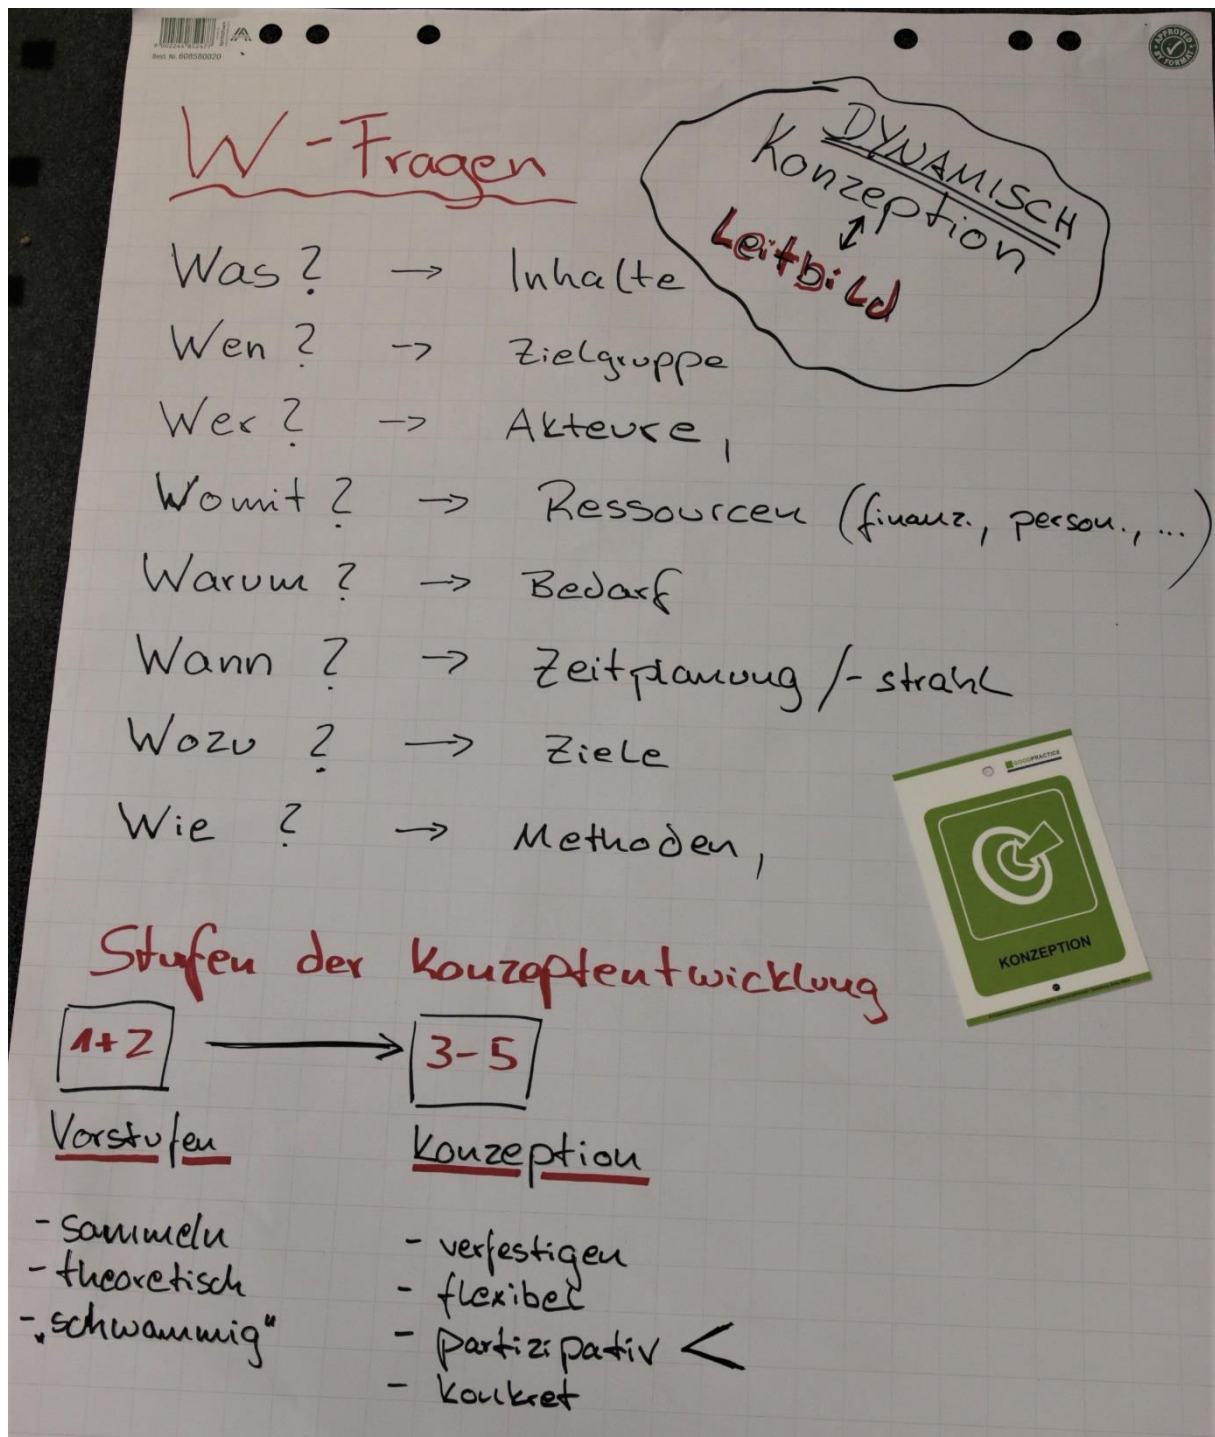 Best. Nr. 608580020
APPROVED BY FORMAT
W-Fragen
DYNAMISCH
Konzeption
Leitbild
Was? → Inhalte
Wen? → Zielgruppe
Wer? → Akteure,
Womit? → Ressourcen (finanz., person., ...)
Warum? → Bedarf
Wann? → Zeitplanung /- strahl
Wozu? → Ziele
Wie? → Methoden,
GOODPRACTICE
KONZEPTION
Stufen der Konzeptentwicklung
1+2 → 3-5
Vorstufen
- sammeln
- theoretisch
- „schwammig"
Konzeption
- verfestigen
- flexibel
- partizipativ <
- konkret